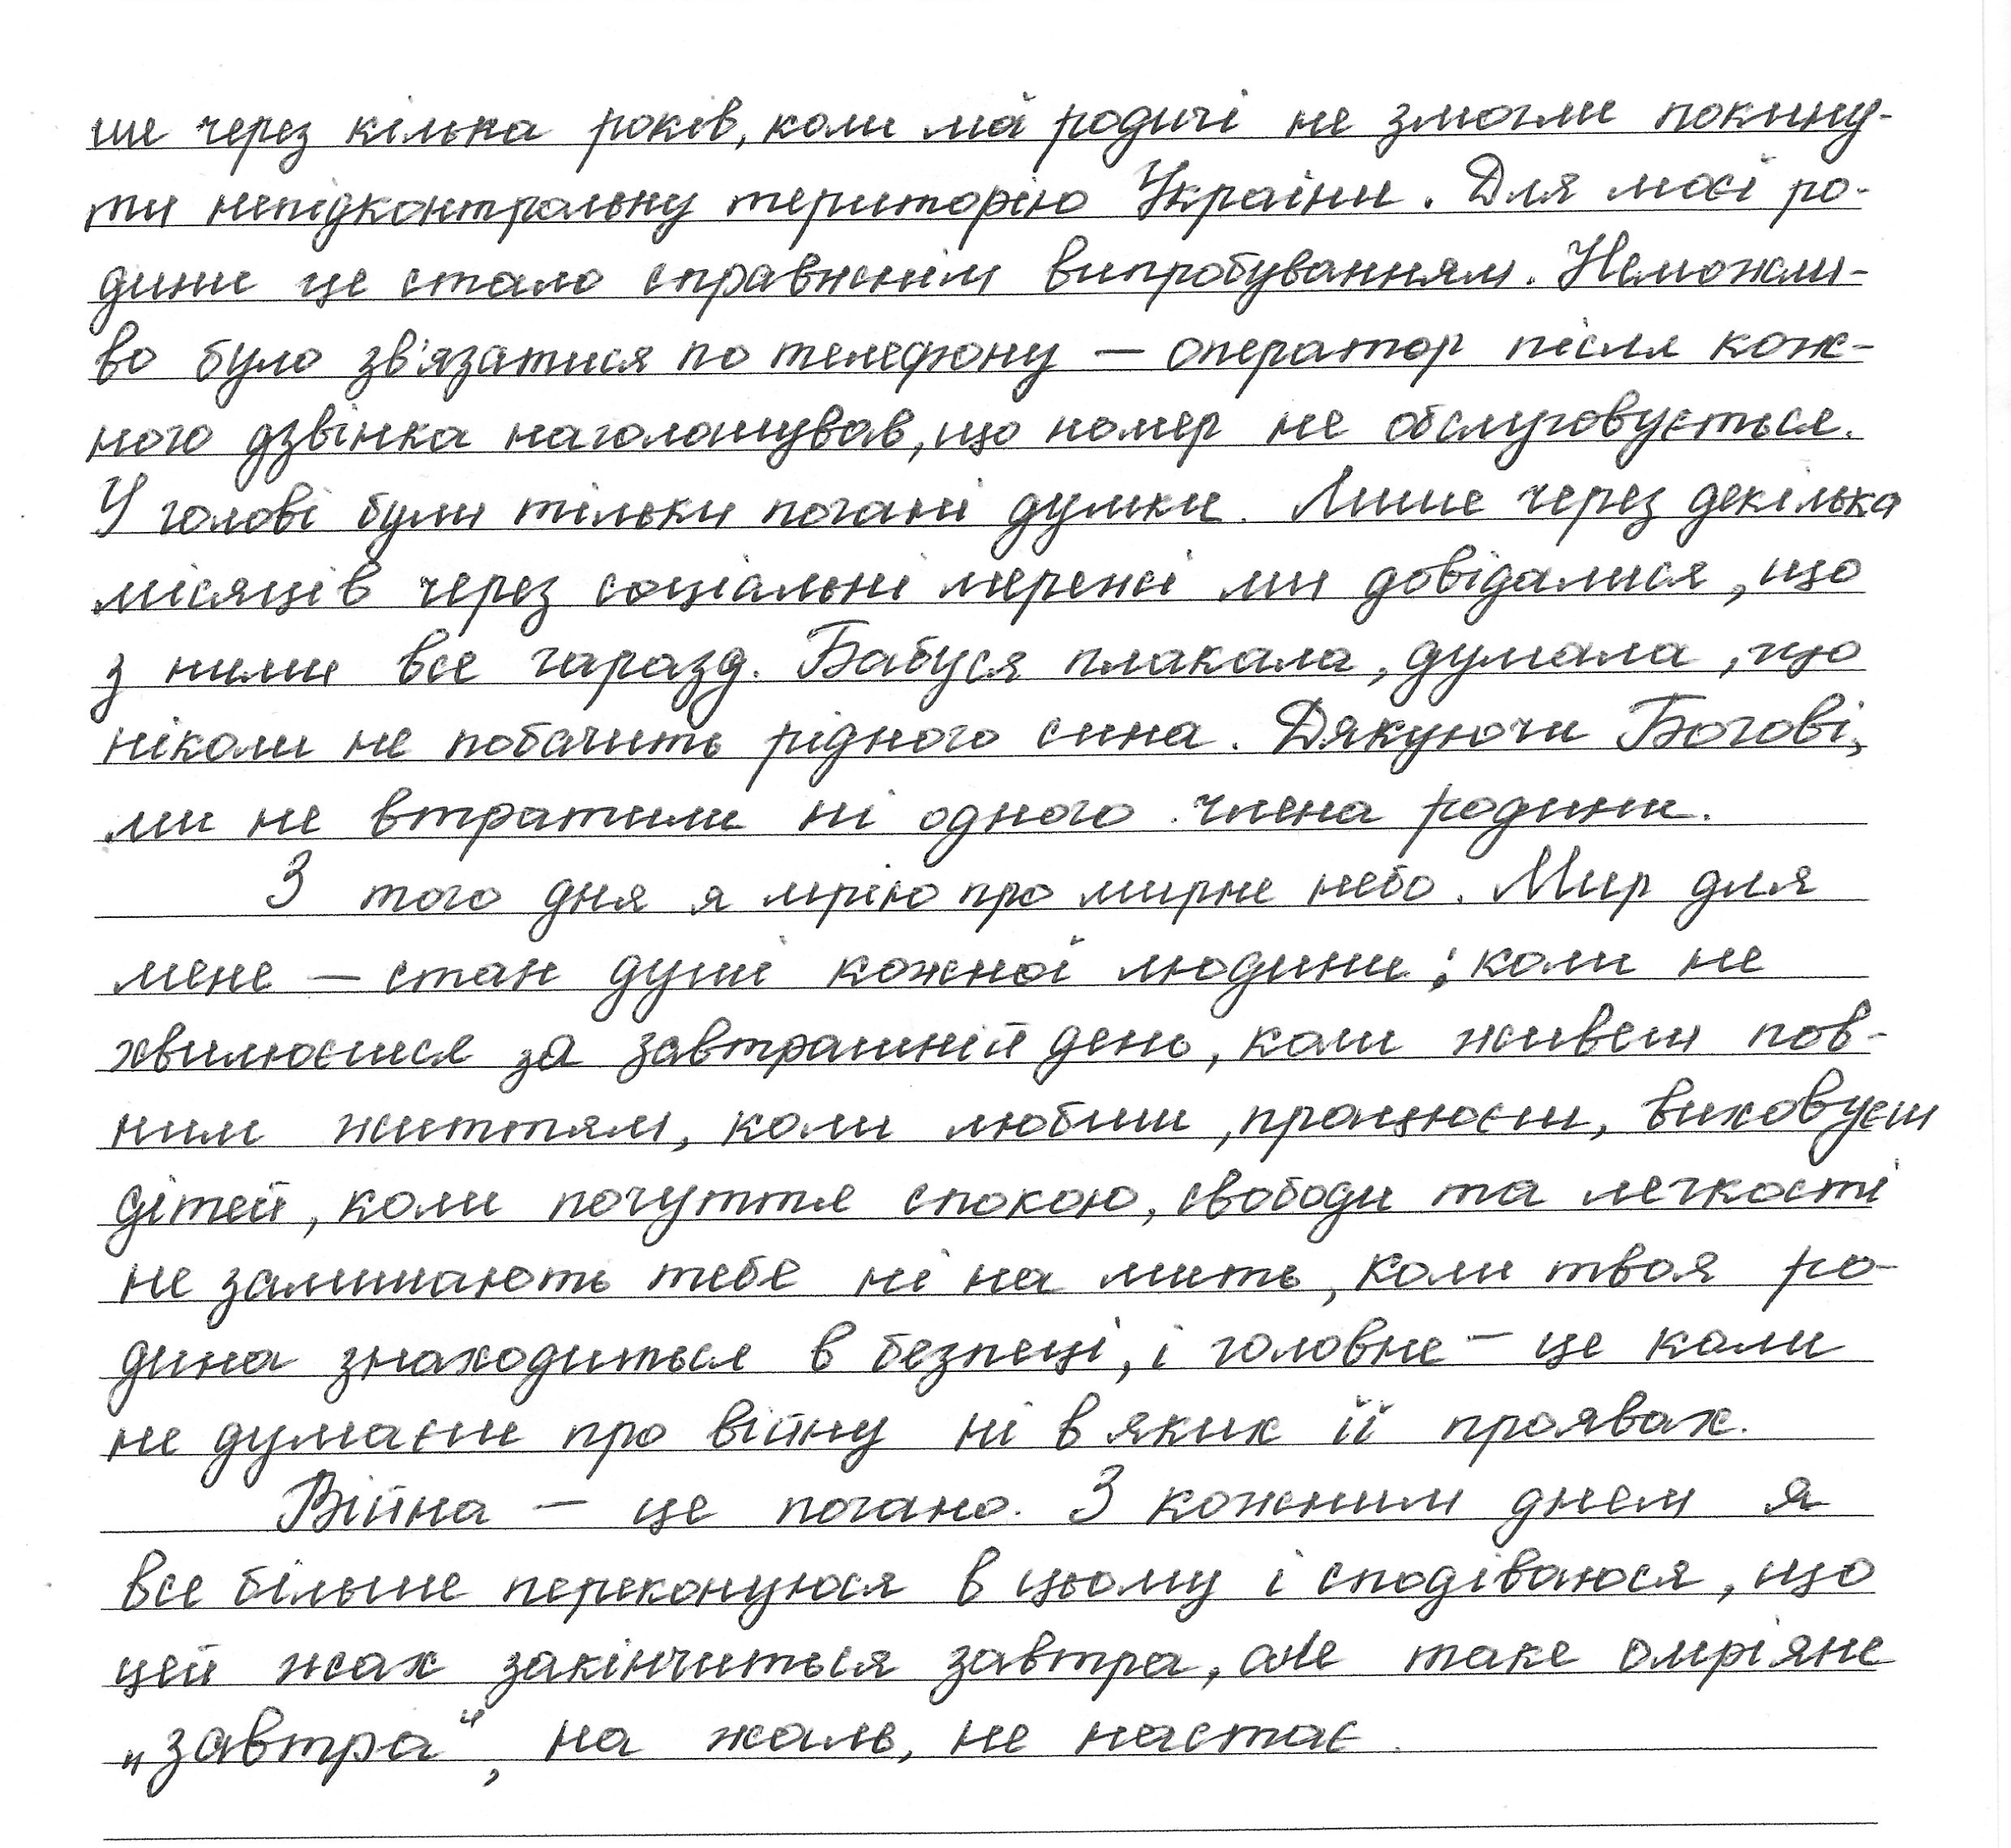 ше через кілька років, коли мої родичі не змогли покину-
ти непідконтрольну територію України. Для моєї ро-
дини це стало справжнім випробуванням. Неможли-
во було зв'язатися по телефону — оператор після кож-
ного дзвінка наголошував, що номер не обслуговується.
У голові були тільки погані думки. Лише через декілька
місяців через соціальні мережі ми довідалися, що
з ними все гаразд. Бабуся плакала, думала, що
ніколи не побачить рідного сина. Дякуючи Богові,
ми не втратили ні одного члена родини.
З того дня я мрію про мирне небо. Мир для
мене — стан душі кожної людини; коли не
хвилюєшся за завтрашній день, коли живеш пов-
ним життям, коли любиш, працюєш, виховуєш
дітей, коли почуття спокою, свободи та легкості
не залишають тебе ні на мить, коли твоя ро-
дина знаходиться в безпеці, і головне — це коли
не думаєш про війну ні в яких її проявах.
Війна — це погано. З кожним днем я
все більше переконуюся в цьому і сподіваюся, що
цей жах закінчиться завтра, але таке омріяне
„завтра", на жаль, не настає.